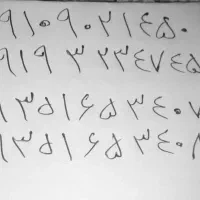 ۹۱۰۹۰۲۱۴۵۰
۹۱۹۳۲۳۴۷۴۵
۱۳۵۱۶۵۳۴۰۷
۱۳۵۱۶۵۳۴۰۸